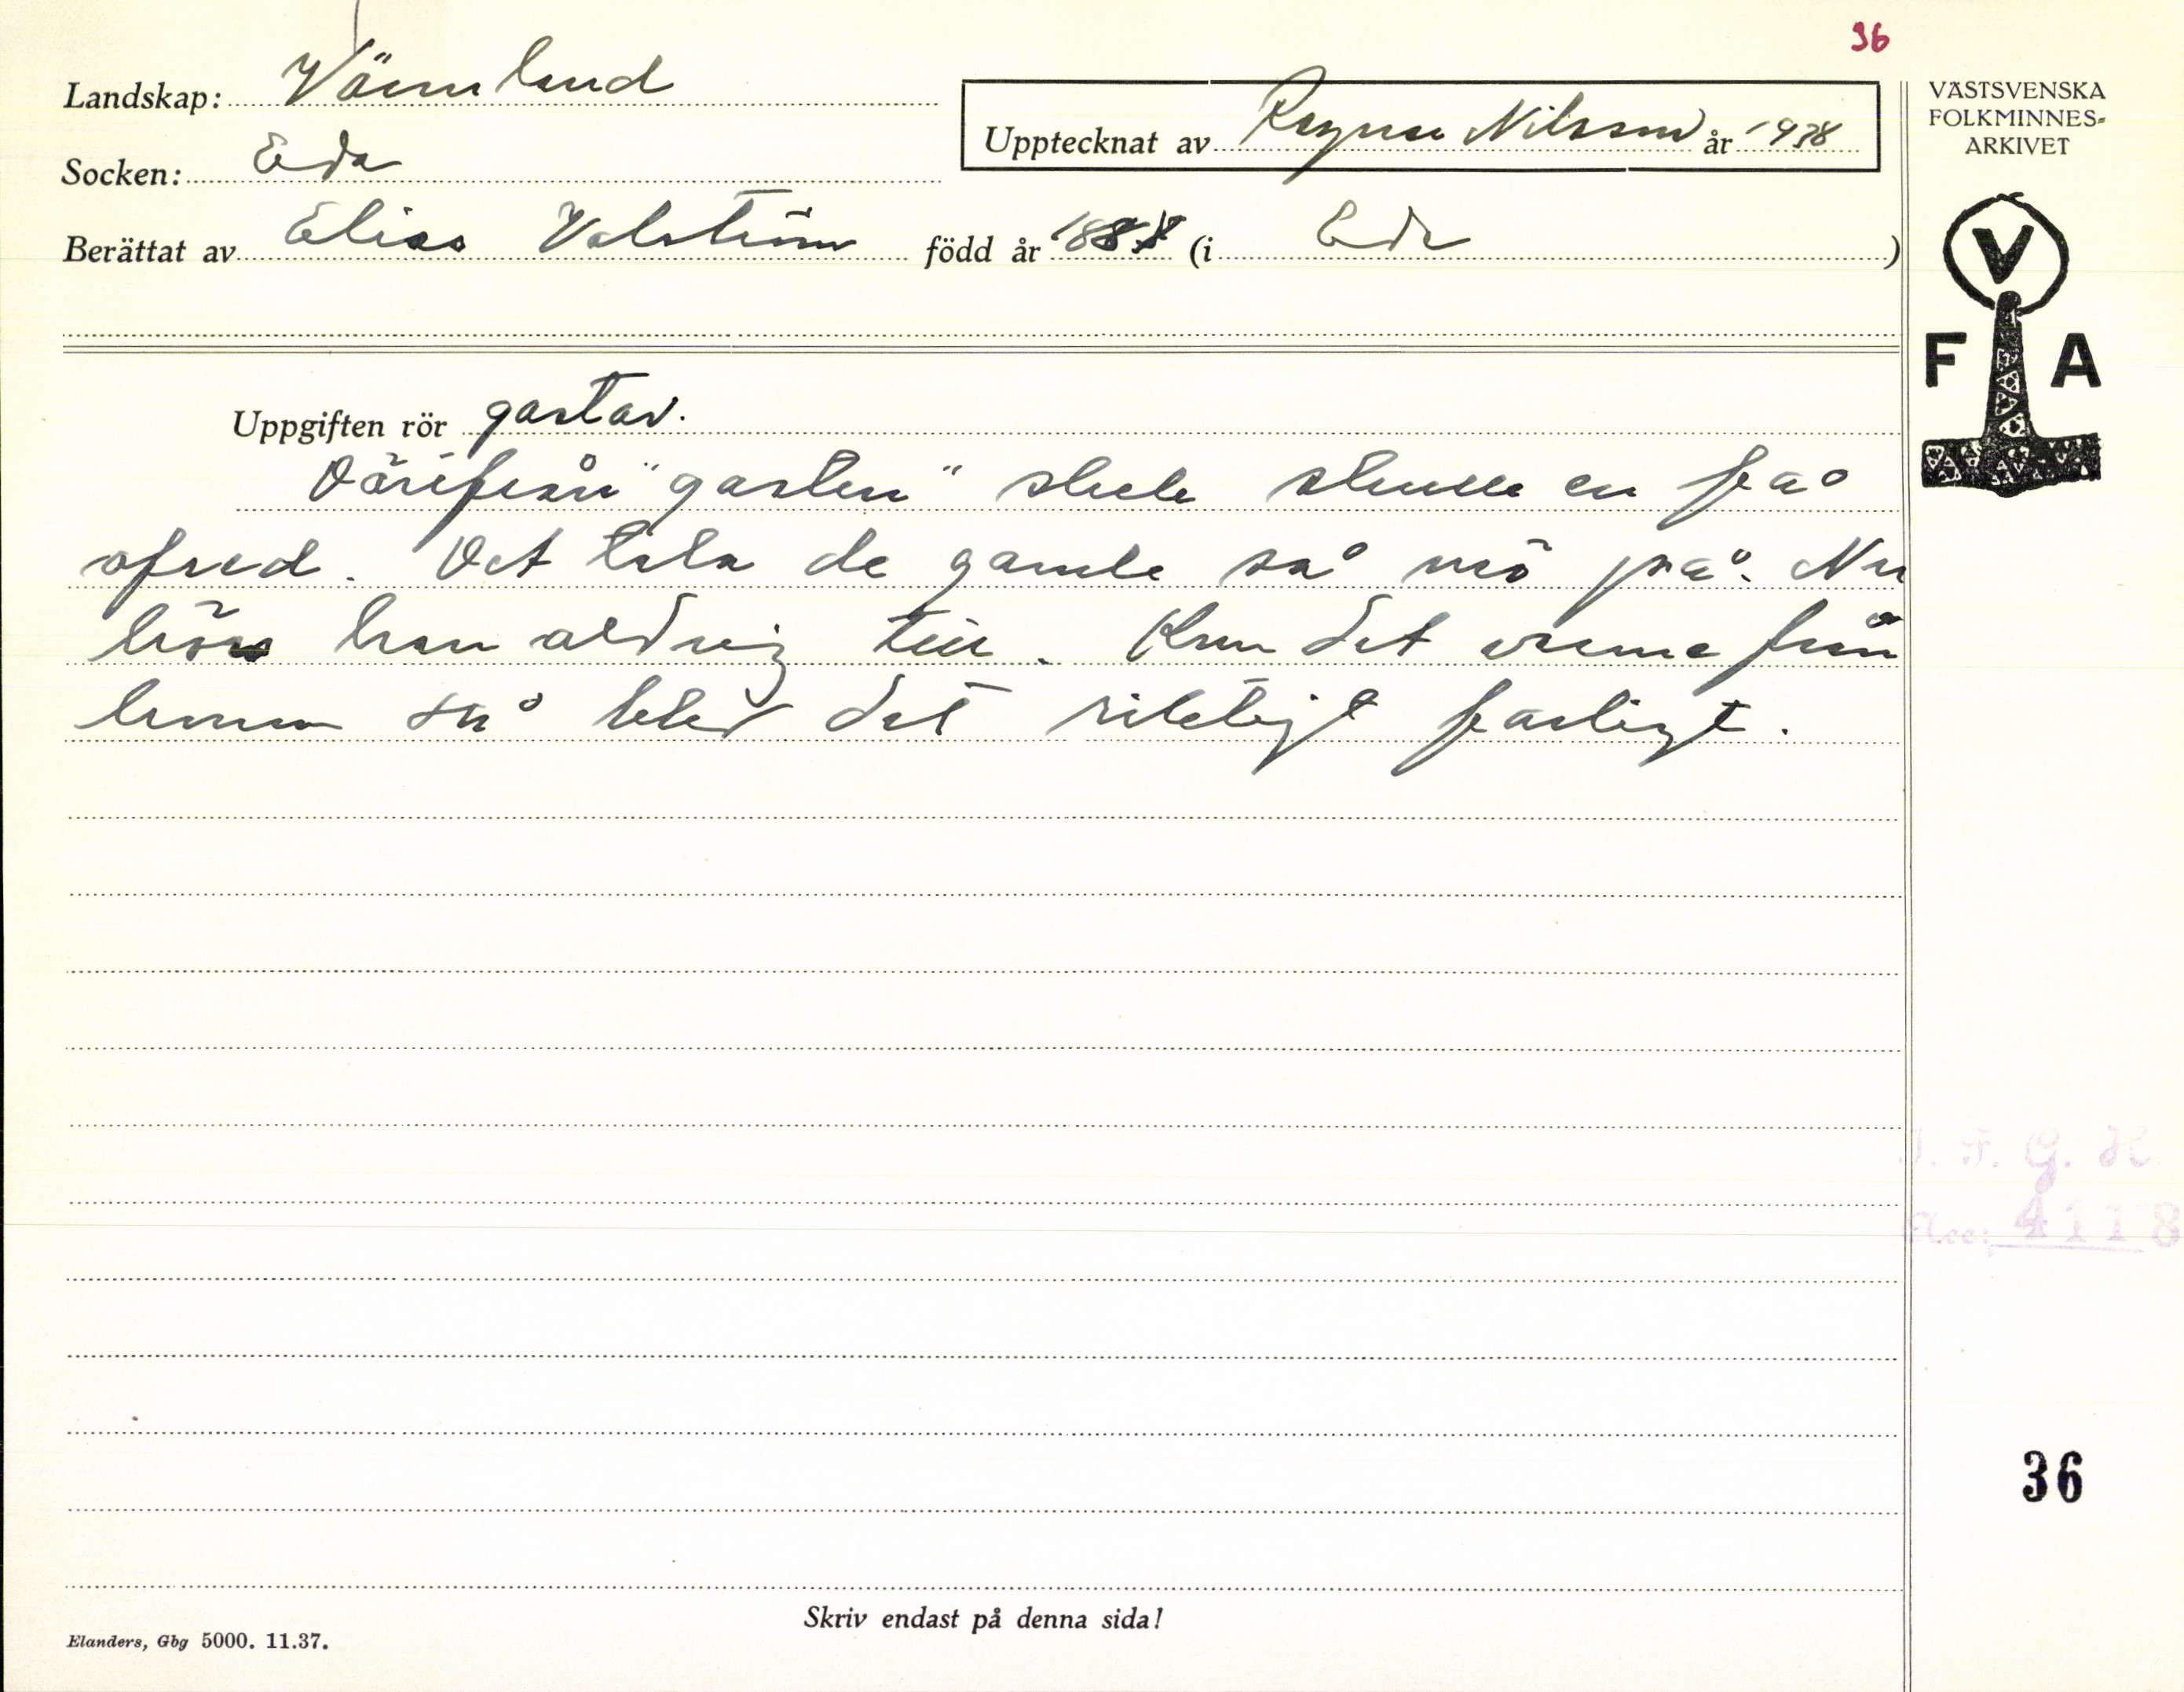 36
Landskap: Värmland
Upptecknat av Ragnar Nilsson år 1938
Socken: Eda
Berättat av Elias Valström född år 1888 (i Eda)
VÄSTSVENSKA
FOLKMINNES-
ARKIVET
V
F A
Uppgiften rör gastar.
Därifrån "gasten" skrek skulle en få
ofred. Det tala de gamle så mö på. Nu
hörs han aldrig till. Kom det
så blev det riktigt farligt.
I. F. G. H.
Acc: 4118
36
Skriv endast på denna sida!
Elanders, Gbg 5000. 11.37.